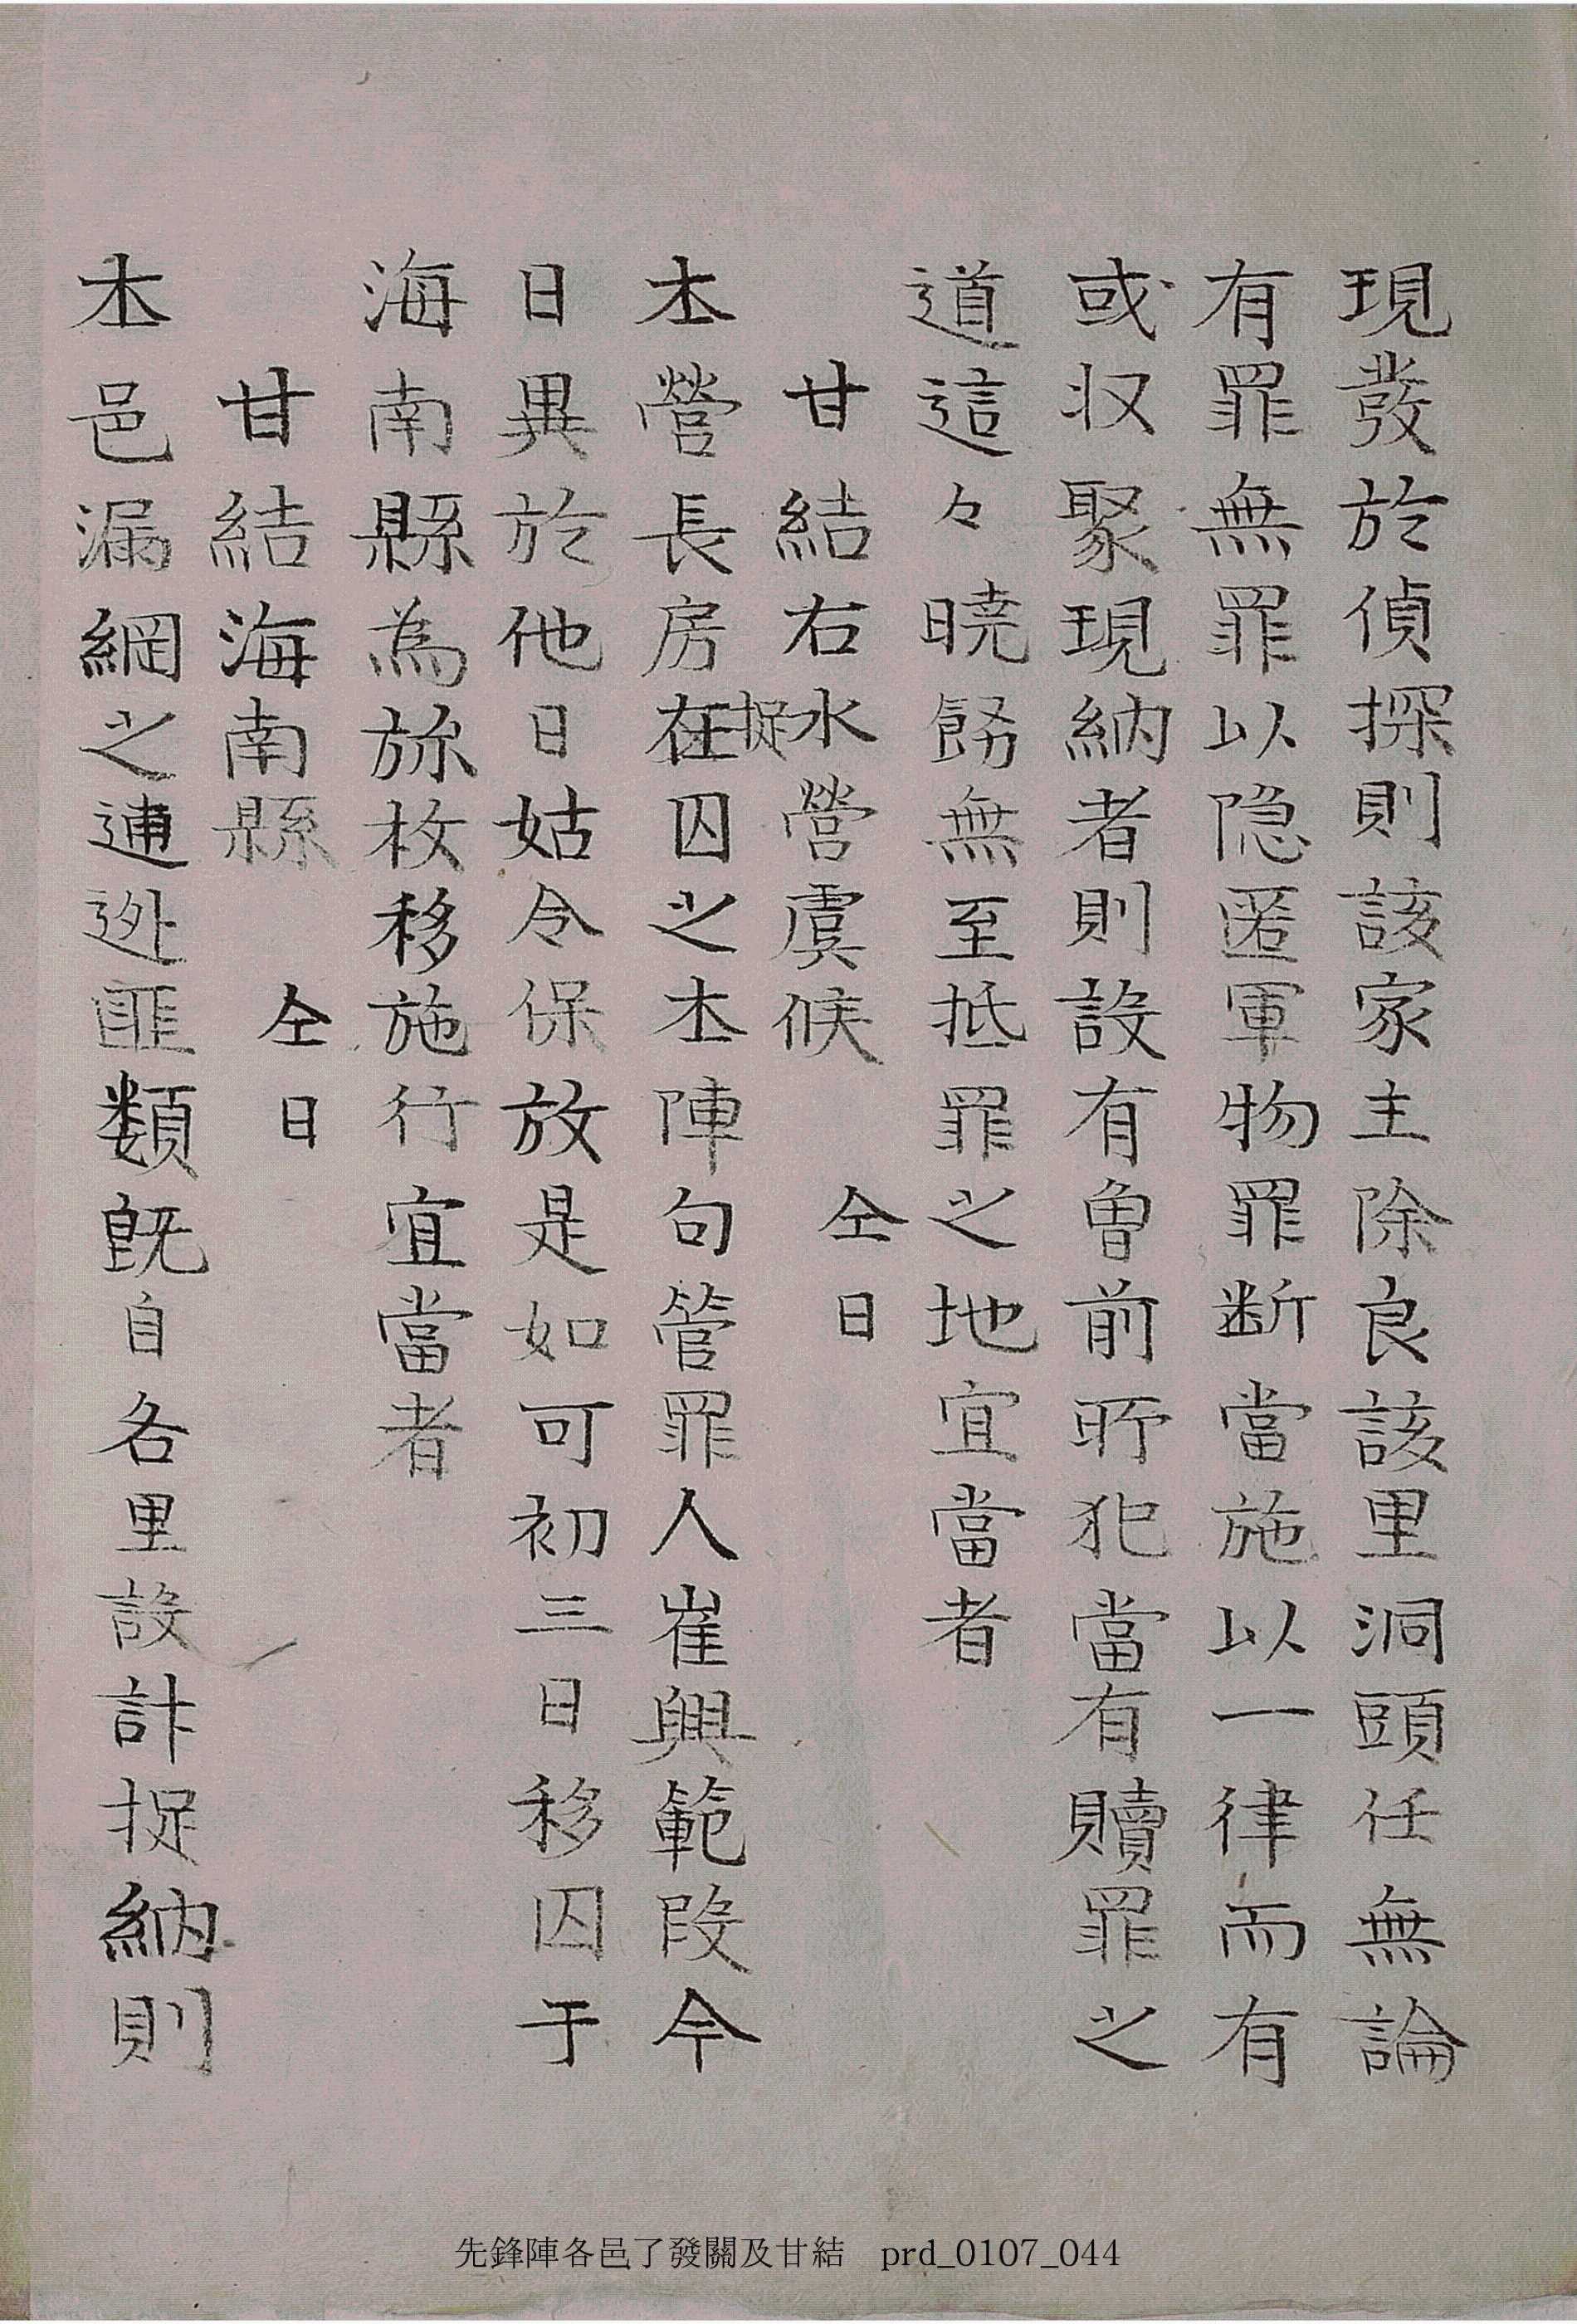 現發於偵探則該家主除良該里洞頭任無論
有罪無罪以隐匿軍物罪断當施以一律而有
或収聚現納者則設有曾前所犯當有贖罪之
道這々曉飭無至抵罪之地宜當者
甘結右水營虞候 仝日
本營長房在囚之本陣句管罪人崔興範段今
捉
日異於他日姑令保放是如可初三日移囚于
海南縣為旀枚移施行宜當者
甘結海南縣 仝日
本邑漏網之逋逃匪類既自各里設計捉納則
先鋒陣各邑了發關及甘結 prd_0107_044